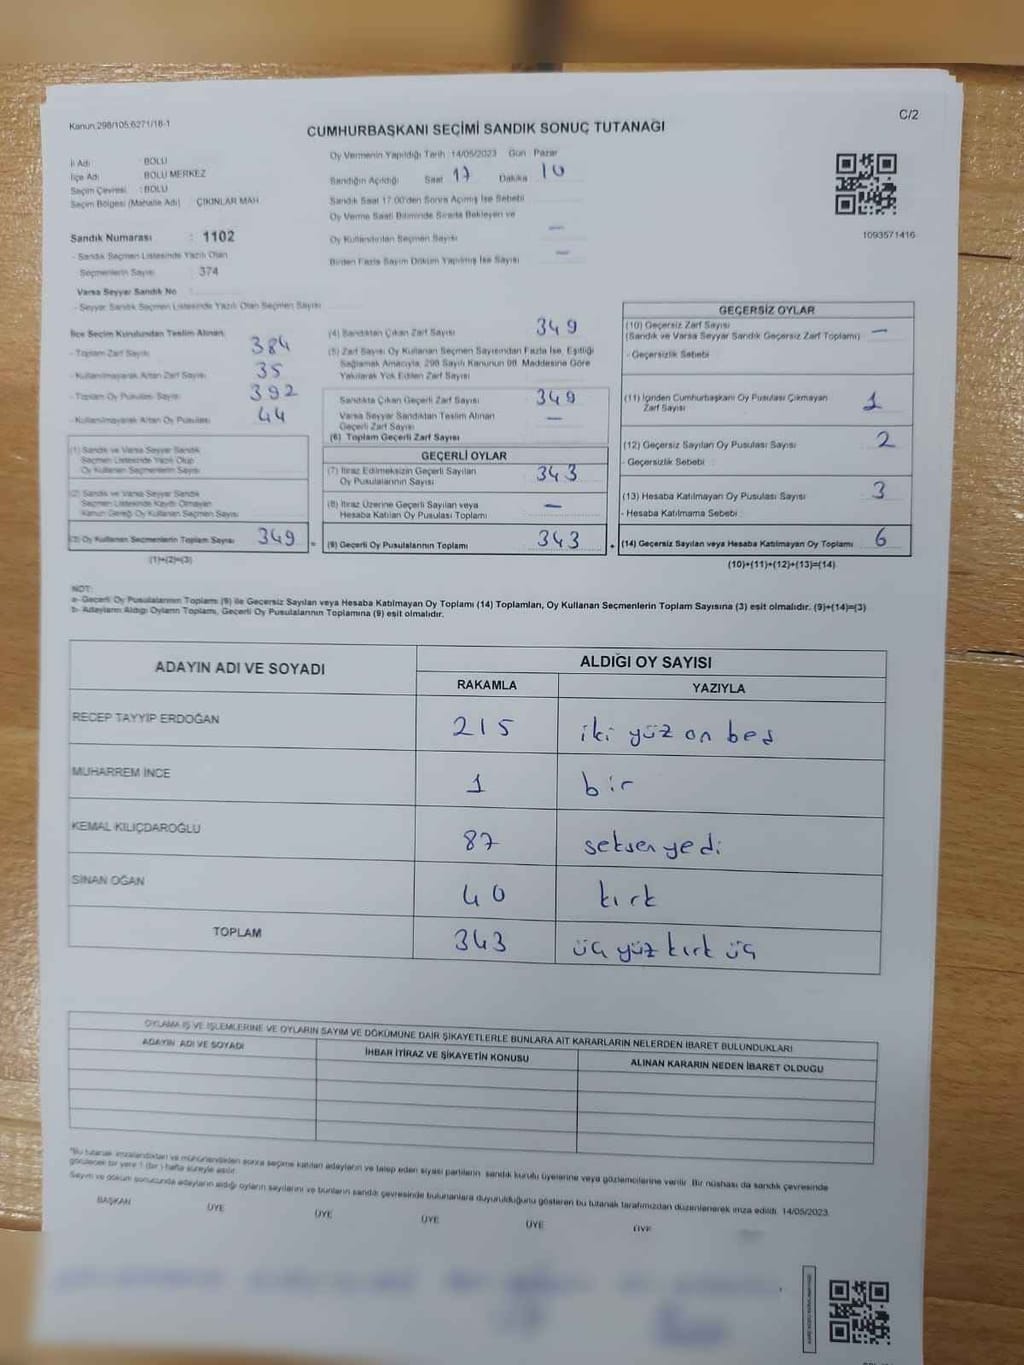 Kanun:298/105;6271/16-1
C/2
CUMHURBAŞKANI SEÇİMİ SANDIK SONUÇ TUTANAĞI
İl Adı : BOLU
İlçe Adı : BOLU MERKEZ
Seçim Çevresi : BOLU
Seçim Bölgesi (Mahalle Adı) ÇIKINLAR MAH
Oy Vermenin Yapıldığı Tarih :14/05/2023 Gün Pazar
Sandığın Açıldığı Saat 17 Dakika 10
Sandık Saat 17.00'den Sonra Açılmış İse Sebebi
Oy Verme Saati Bitiminde Sırada Bekleyen ve
Oy Kullandırılan Seçmen Sayısı —
Birden Fazla Sayım Döküm Yapılmış İse Sayısı —
1093571416
Sandık Numarası : 1102
- Sandık Seçmen Listesinde Yazılı Olan
Seçmenlerin Sayısı 374
Varsa Seyyar Sandık No
- Seyyar Sandık Seçmen Listesinde Yazılı Olan Seçmen Sayısı
İlçe Seçim Kurulundan Teslim Alınan:
- Toplam Zarf Sayısı 384
- Kullanılmayarak Artan Zarf Sayısı 35
- Toplam Oy Pusulası Sayısı 392
- Kullanılmayarak Artan Oy Pusulası 44
(1) Sandık ve Varsa Seyyar Sandık
Seçmen Listesinde Yazılı Olup
Oy Kullanan Seçmenlerin Sayısı
(2) Sandık ve Varsa Seyyar Sandık
Seçmen Listesinde Kaydı Olmayan
Kanun Gereği Oy Kullanan Seçmen Sayısı
(3) Oy Kullanan Seçmenlerin Toplam Sayısı 349
(1)+(2)=(3)
(4) Sandıktan Çıkan Zarf Sayısı 349
(5) Zarf Sayısı Oy Kullanan Seçmen Sayısından Fazla İse, Eşitliği
Sağlamak Amacıyla, 298 Sayılı Kanunun 98. Maddesine Göre
Yakılarak Yok Edilen Zarf Sayısı
Sandıkta Çıkan Geçerli Zarf Sayısı 349
Varsa Seyyar Sandıktan Teslim Alınan
Geçerli Zarf Sayısı —
(6) Toplam Geçerli Zarf Sayısı
GEÇERLİ OYLAR
(7) İtiraz Edilmeksizin Geçerli Sayılan
Oy Pusulalarının Sayısı 343
(8) İtiraz Üzerine Geçerli Sayılan veya
Hesaba Katılan Oy Pusulası Toplamı —
= (9) Geçerli Oy Pusulalarının Toplamı 343
GEÇERSİZ OYLAR
(10) Geçersiz Zarf Sayısı
(Sandık ve Varsa Seyyar Sandık Geçersiz Zarf Toplamı) —
- Geçersizlik Sebebi
(11) İçinden Cumhurbaşkanı Oy Pusulası Çıkmayan
Zarf Sayısı 1
(12) Geçersiz Sayılan Oy Pusulası Sayısı 2
- Geçersizlik Sebebi
(13) Hesaba Katılmayan Oy Pusulası Sayısı 3
- Hesaba Katılmama Sebebi
+ (14) Geçersiz Sayılan veya Hesaba Katılmayan Oy Toplamı 6
(10)+(11)+(12)+(13)=(14)
NOT:
a- Geçerli Oy Pusulalarının Toplamı (9) ile Geçersiz Sayılan veya Hesaba Katılmayan Oy Toplamı (14) Toplamları, Oy Kullanan Seçmenlerin Toplam Sayısına (3) eşit olmalıdır. (9)+(14)=(3)
b- Adayların Aldığı Oyların Toplamı, Geçerli Oy Pusulalarının Toplamına (9) eşit olmalıdır.
ADAYIN ADI VE SOYADI
ALDIĞI OY SAYISI
RAKAMLA YAZIYLA
RECEP TAYYİP ERDOĞAN 215 iki yüz on beş
MUHARREM İNCE 1 bir
KEMAL KILIÇDAROĞLU 87 seksen yedi
SİNAN OĞAN 40 kırk
TOPLAM 343 üç yüz kırk üç
OYLAMA İŞ VE İŞLEMLERİNE VE OYLARIN SAYIM VE DÖKÜMÜNE DAİR ŞİKAYETLERLE BUNLARA AİT KARARLARIN NELERDEN İBARET BULUNDUKLARI
ADAYIN ADI VE SOYADI
İHBAR İTİRAZ VE ŞİKAYETİN KONUSU
ALINAN KARARIN NEDEN İBARET OLDUĞU
*Bu tutanak imzalandıktan ve mühürlendikten sonra seçime katılan adayların ve talep eden siyasi partilerin sandık kurulu üyelerine veya gözlemcilerine verilir. Bir nüshası da sandık çevresinde
görülecek bir yere 1 (bir) hafta süreyle asılır.
Sayım ve döküm sonucunda adayların aldığı oyların sayılarını ve bunların sandık çevresinde bulunanlara duyurulduğunu gösteren bu tutanak tarafımızdan düzenlenerek imza edildi. 14/05/2023
BAŞKAN ÜYE ÜYE ÜYE ÜYE ÜYE